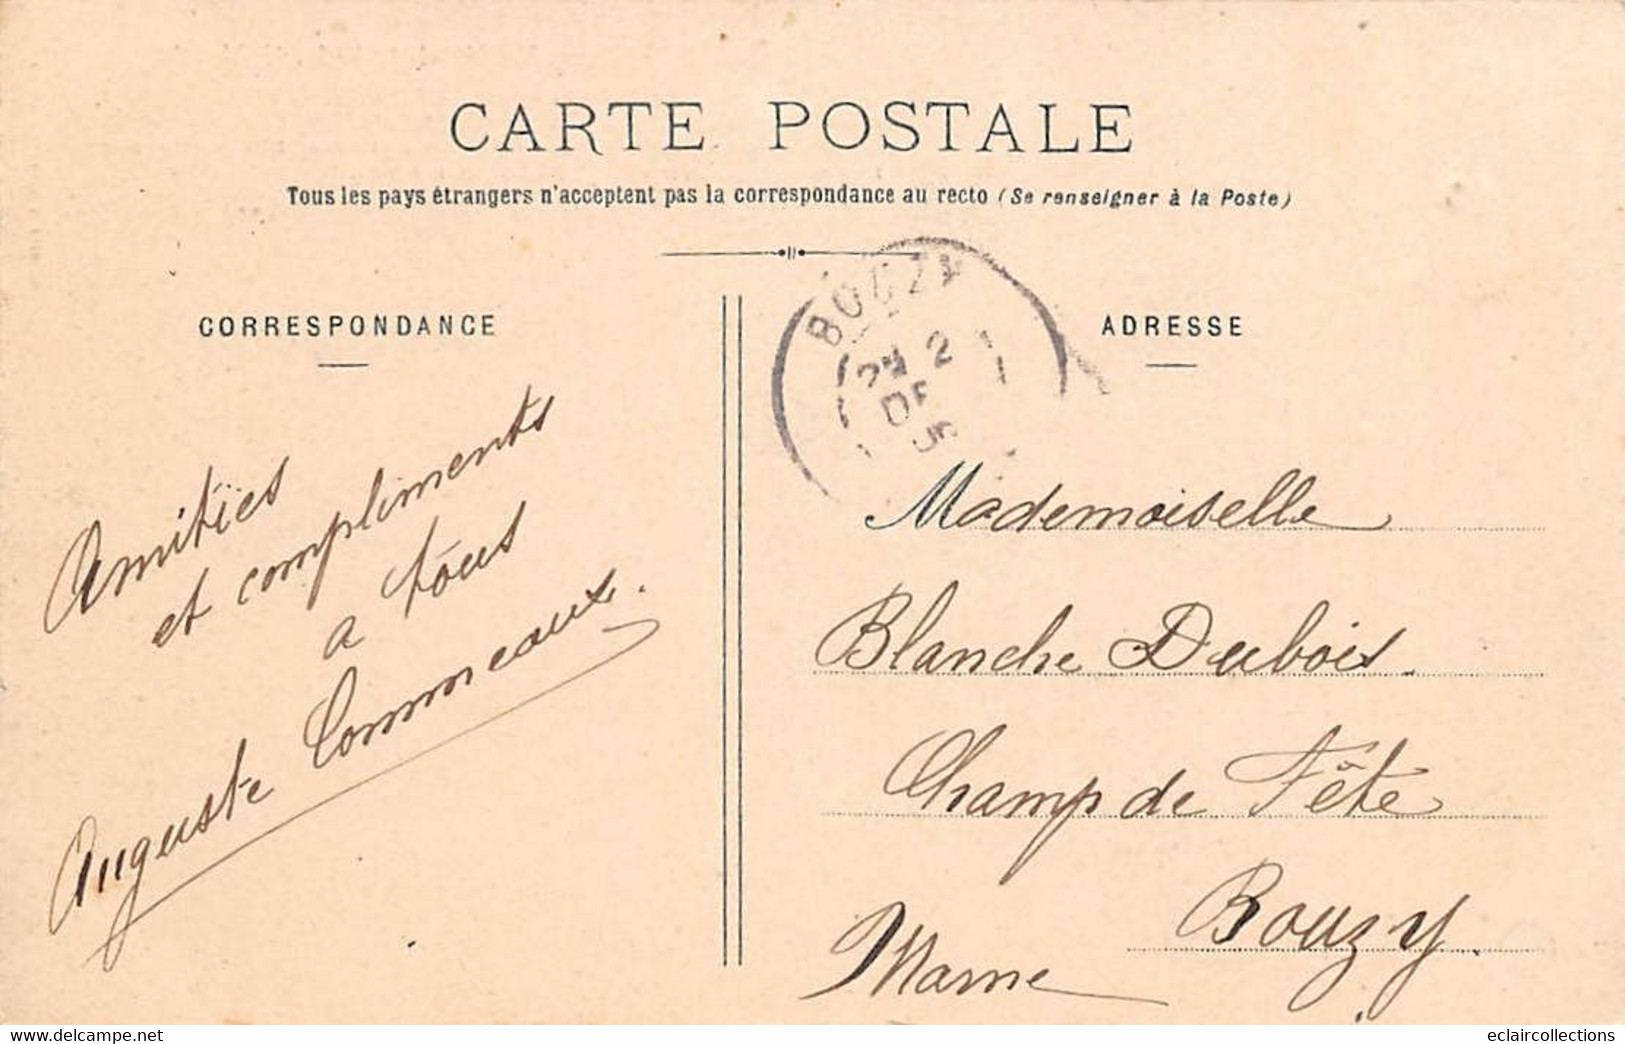 CARTE POSTALE
Tous les pays étrangers n'acceptent pas la correspondance au recto (Se renseigner à la Poste)
CORRESPONDANCE
ADRESSE
BOUZY
2
DE
Amitiés
et compliments
a tous
Auguste Commeaux.
Mademoiselle
Blanche Dubois
Champ de Fête
Bouzy.
Marne
Delcampe.net
eclaircollections